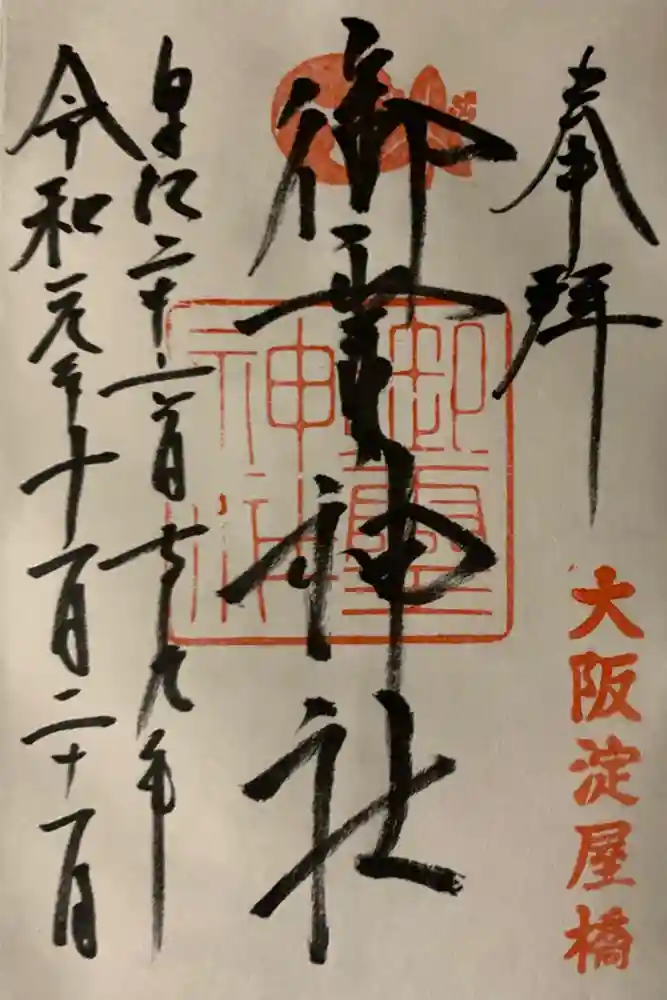 奉拝
大阪淀屋橋
御霊神社
御霊
神社
皇紀二千六百七十九年
令和元年十一月二十一日